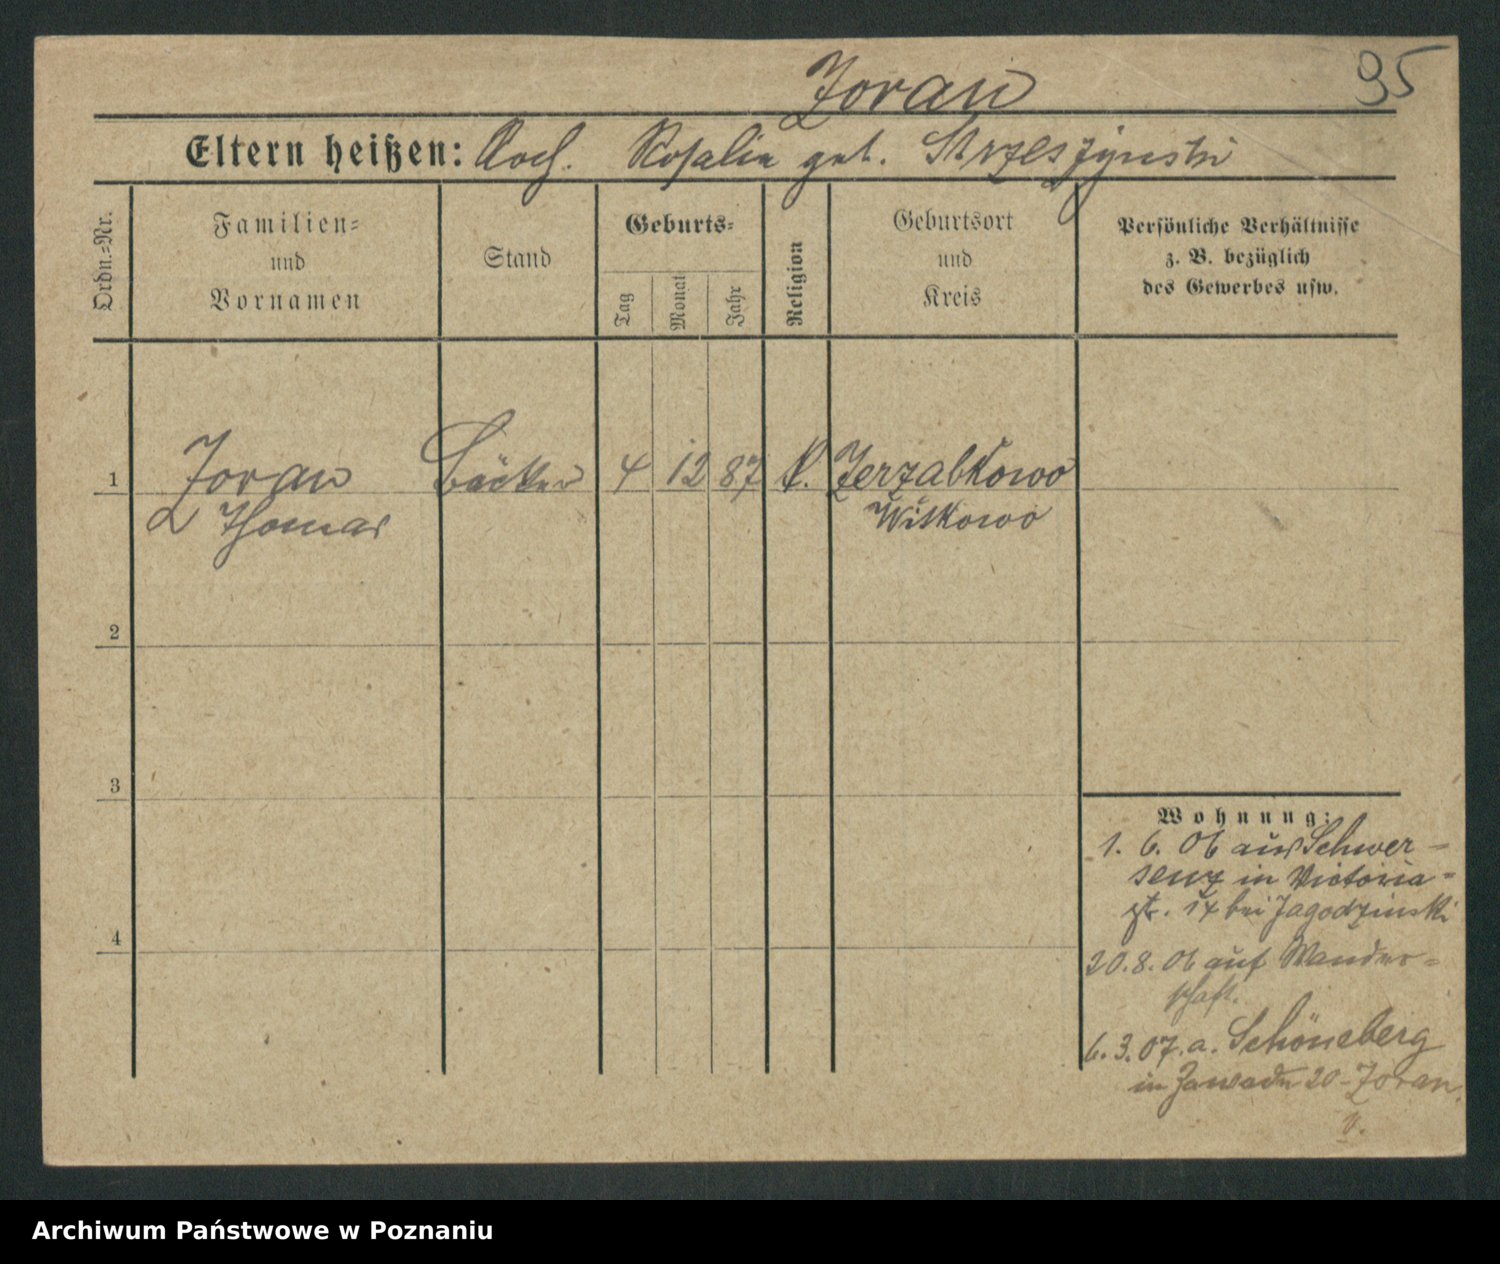 Zoran
95
Eltern heißen: Roch. Rosalie geb. Strzeszynski
Ordn.=Nr.
Familien=
und
Vornamen
Stand
Geburts=
Tag
Monat
Jahr
Religion
Geburtsort
und
Kreis
Persönliche Verhältnisse
z. B. bezüglich
des Gewerbes usw.
1
Zoran Bäcker 4 12 87 k. Jerzabkowo
Thomas Witkowo
2
3
4
Wohnung:
1. 6. 06 aus Schwer-
senz in Victoria=
str. 14 bei Jagodzinski
20.8.06 auf Wander=
schaft.
6.3.07. a. Schöneberg
in Zawade 20 - Zoran.
v.
Archiwum Państwowe w Poznaniu